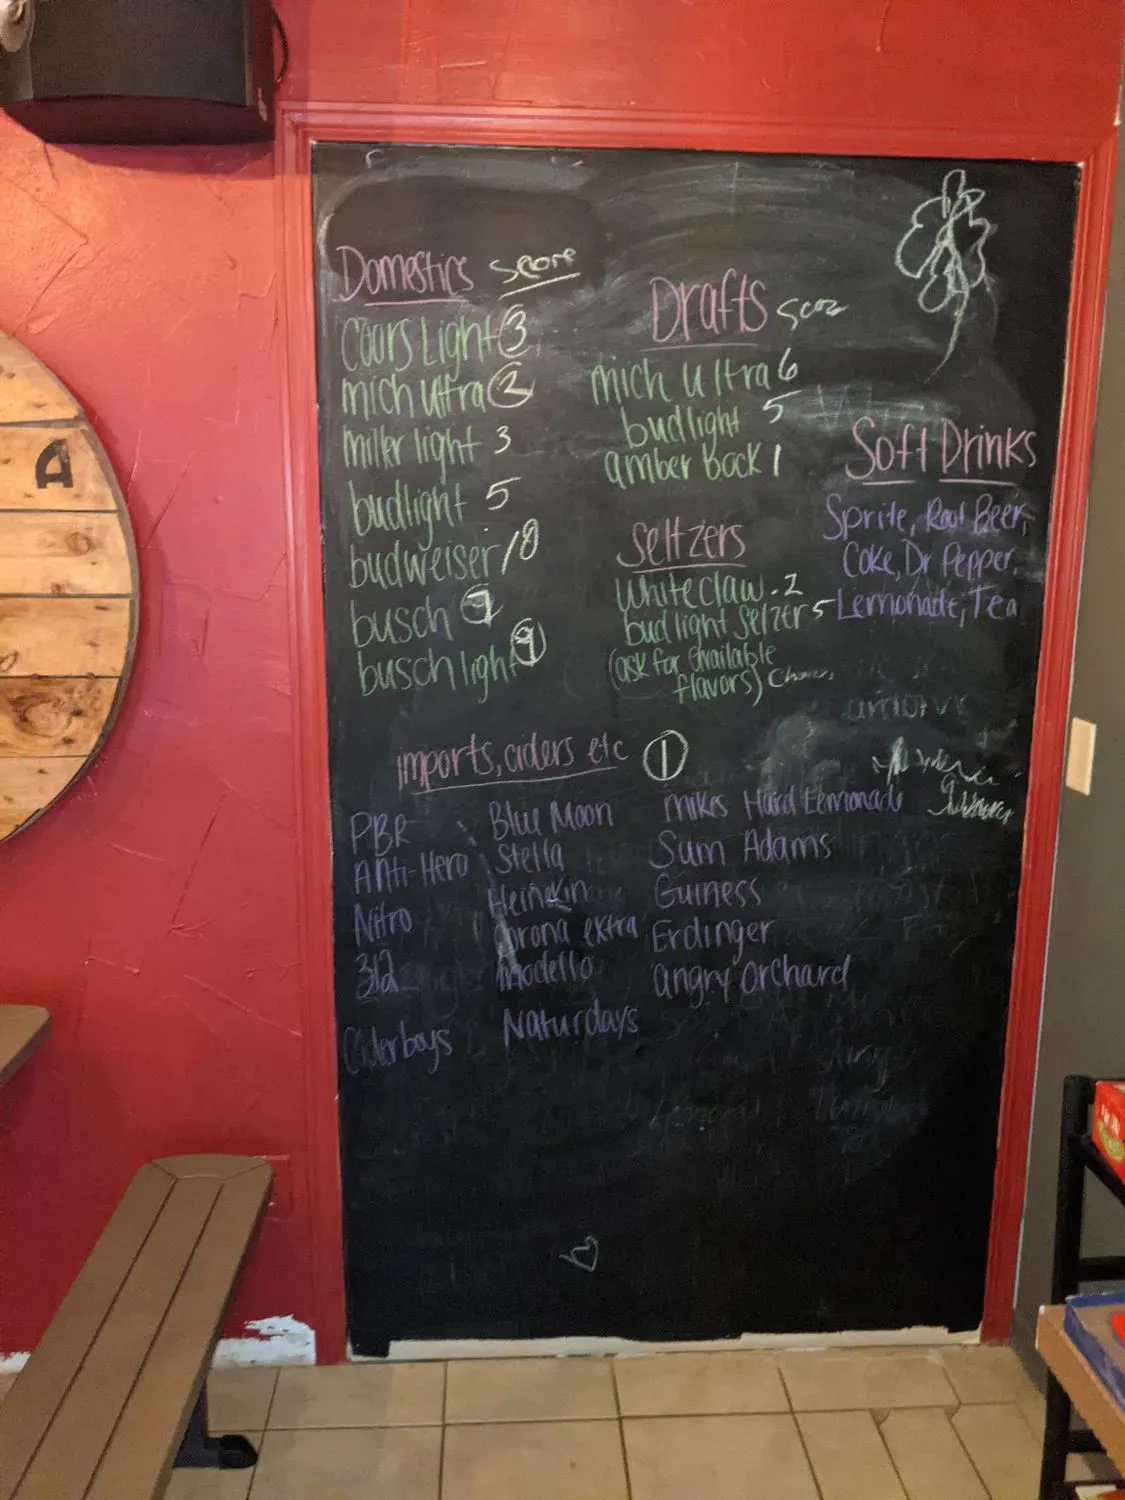 A
Domestics Score
Coors Light 3
mich ultra 2
miller light 3
budlight 5
budweiser 10
busch 9
busch light 9
Drafts
mich ultra 6
budlight 5
amber bock 1
Seltzers
Whiteclaw . 2
bud light Selzer 5
(ask for available
flavors)
Soft Drinks
Sprite, Root Beer,
Coke, Dr Pepper,
Lemonade, Tea
imports, ciders etc 1
PBR
Anti-Hero
Nitro
312
Ciderboys
Blue Moon
Stella
Heinekin
Corona extra
modello
Naturdays
mikes Hard Lemonade
Sam Adams
Guiness
Erdinger
angry orchard